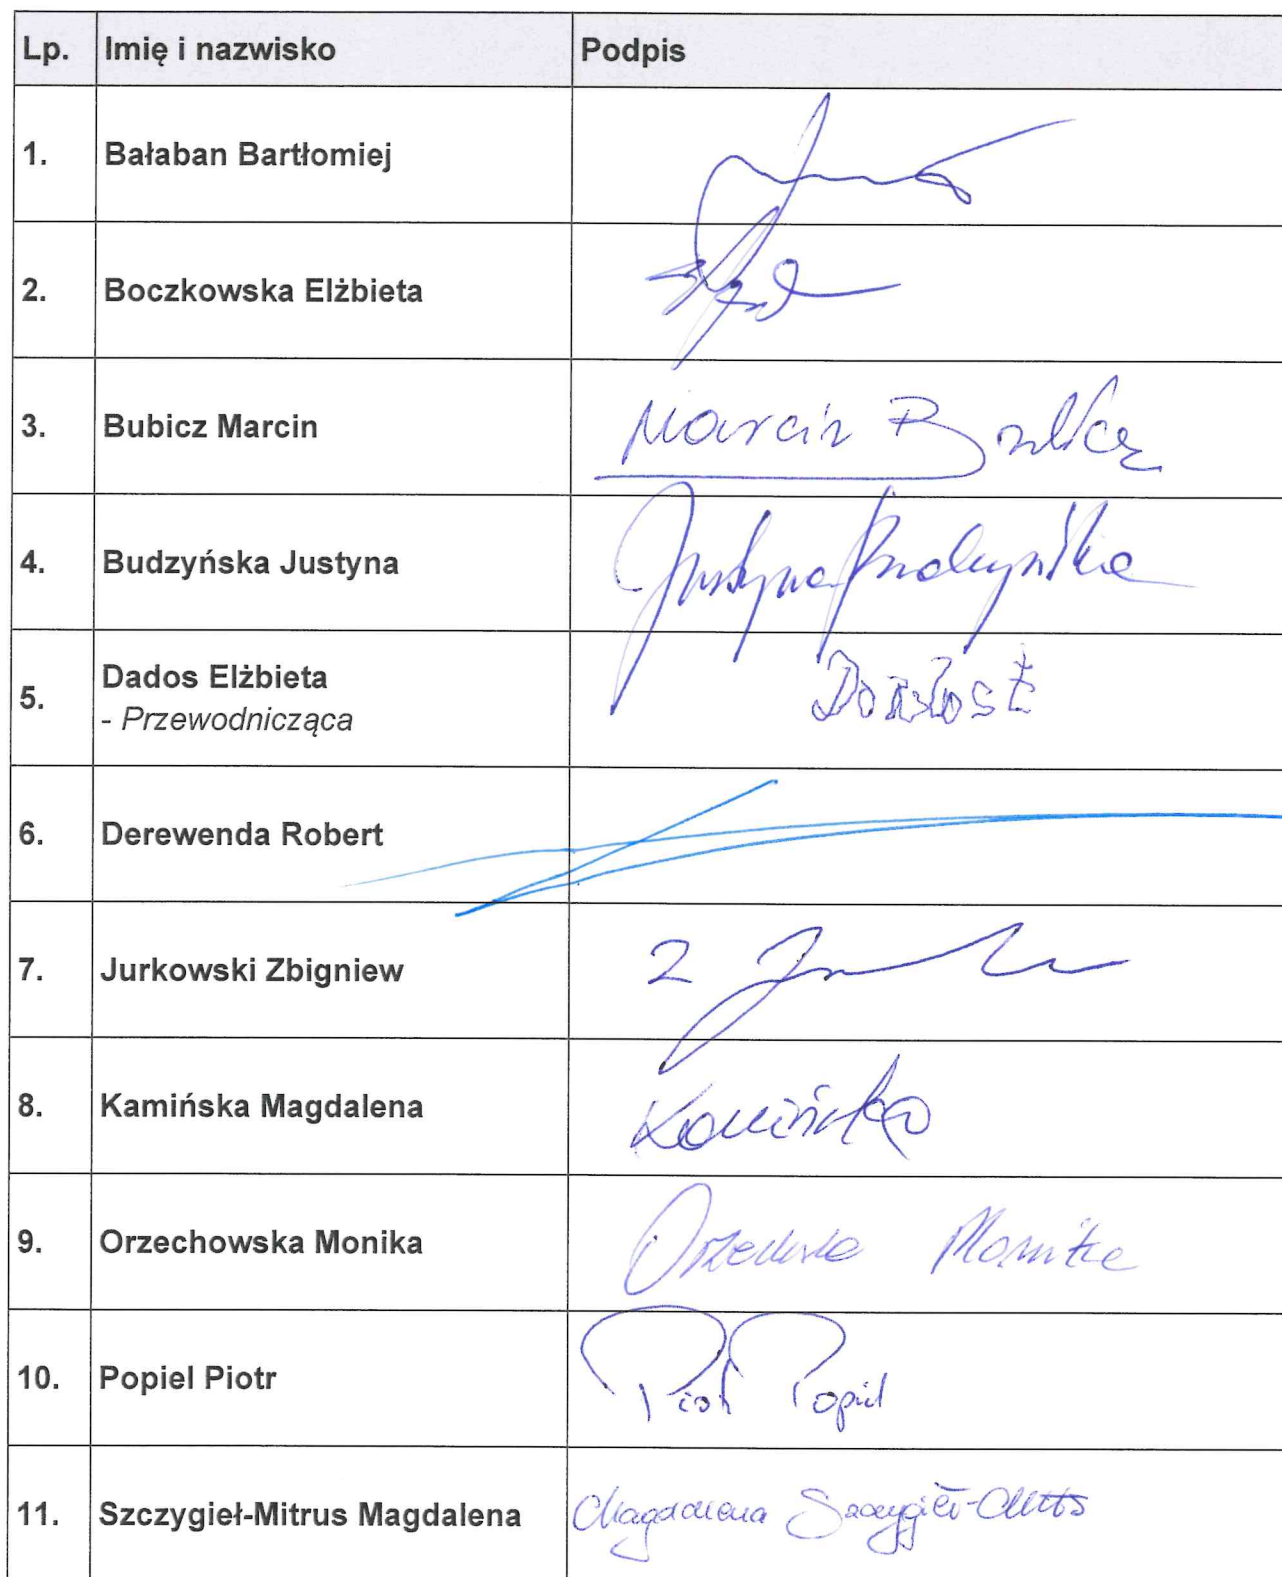 Lp. Imię i nazwisko Podpis
1. Bałaban Bartłomiej
2. Boczkowska Elżbieta
3. Bubicz Marcin Marcin Bubicz
4. Budzyńska Justyna Justyna Budzyńska
5. Dados Elżbieta
- Przewodnicząca
6. Derewenda Robert
7. Jurkowski Zbigniew Z
8. Kamińska Magdalena Kamińska
9. Orzechowska Monika Monika
10. Popiel Piotr Piotr Popiel
11. Szczygieł-Mitrus Magdalena Magdalena Szczygieł-Mitrus